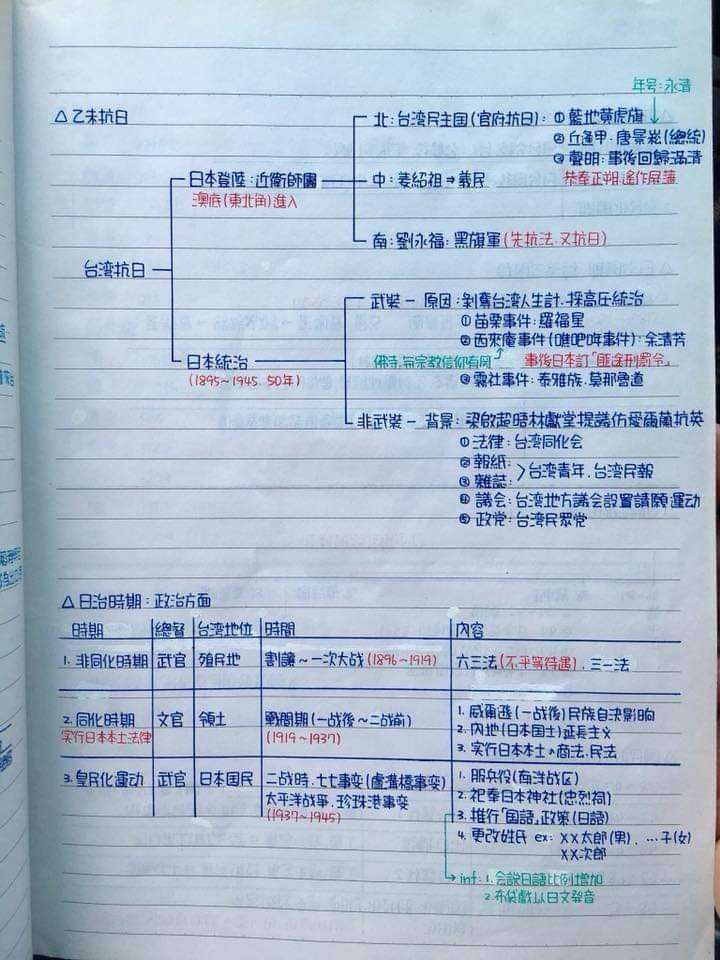 年号:永清
△乙未抗日
北:台湾民主国(官府抗日):①藍地黃虎旗
②丘逢甲:唐景崧(總統)
③聲明:事後回歸滿清
恭奉正朔,遙作屏藩
日本登陸:近衛師團
澳底(東北角)進入
中:姜紹祖⇒義民
南:劉永福:黑旗軍(先抗法.又抗日)
台湾抗日
武裝-原因:剝奪台湾人生計.採高圧統治
①苗栗事件:羅福星
②西來庵事件(噍吧哖事件):余清芳
事後日本訂「匪徒刑罰令」
③霧社事件:泰雅族.莫那魯道
日本統治
(1895~1945.50年)
非武裝-背景:梁啟超晤林獻堂提議仿愛爾蘭抗英
①法律:台湾同化会
②報紙:
③雜誌:
>台湾青年.台湾民報
④議会:台湾地方議会設置請願运动
⑤政党:台湾民眾党
△日治時期:政治方面
時期 總督 台湾地位 時間 內容
1.非同化時期 武官 殖民地 割讓~一次大战(1896~1919) 六三法(不平等待遇).三一法
2.同化時期 文官 領土 戰間期(一战後~二战前)
实行日本本土法律 (1919~1937)
1.威爾遜(一战後)民族自決影响
2.內地(日本国土)延長主义
3.实行日本本土の商法.民法
3.皇民化运动 武官 日本国民 二战時.七七事变(盧溝橋事变)
太平洋战爭.珍珠港事变
(1937~1945)
1.服兵役(南洋战区)
2.祀奉日本神社(忠烈祠)
3.推行「国語」政策(日語)
4.更改姓氏 ex: XX太郎(男).…子(女)
XX次郎
inf:1.会說日語比例增加
2.布袋戲以日文發音